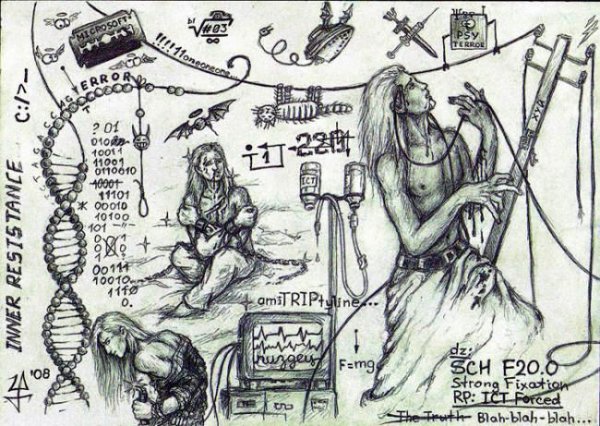 MICROSOFT
bl
#03
!!!!11oneoneone...
PSY
TERROR
ERROR
INNER RESISTANCE C:/>_
? 01
10011
11001
0110010
10001
11101
* 00010
10100
101
00111
10010
1110
0.
i 1
ICT
XYA
amiTRIPtyline...
F=mg
dz:
SCH F20.0
Strong Fixation
RP: ICT Forced
The Truth Blah-blah-blah...
'08